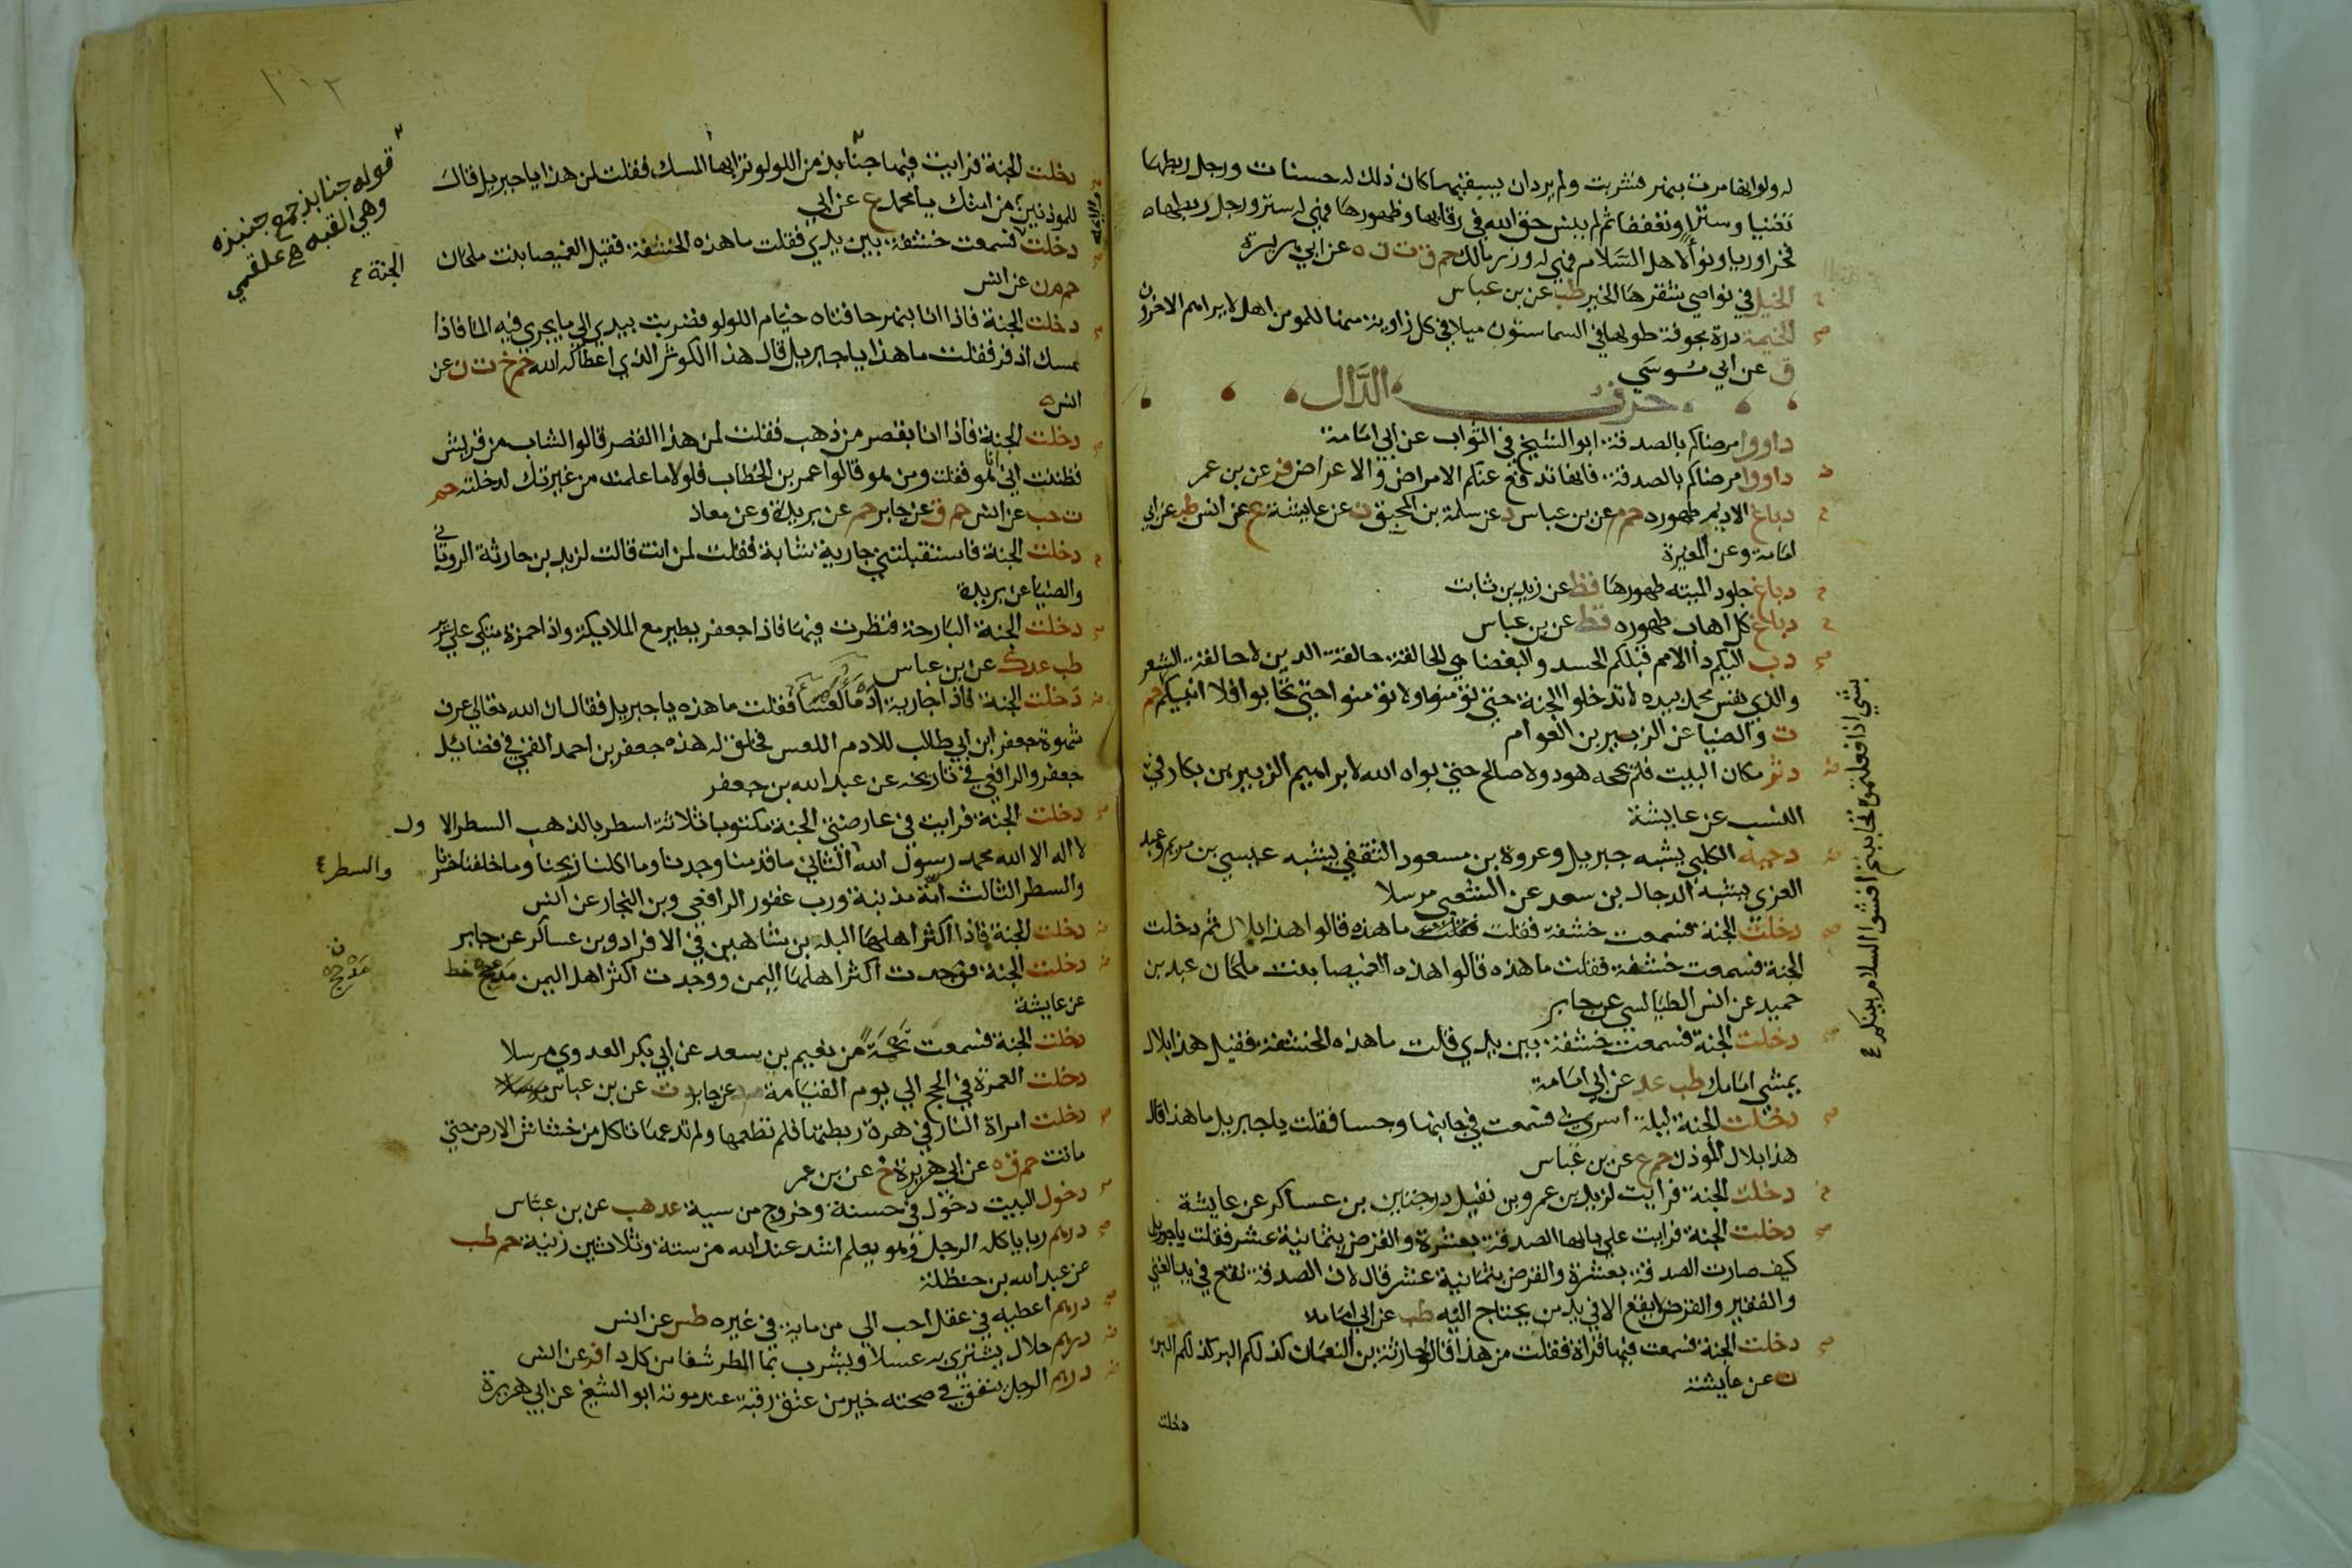 له ولو انها مرت بنهر فشربت ولم يرد ان يسقيها كان ذلك له حسنات ورجل ربطها
تغنيا وسترا وتعففا ثم لم ينس حق الله في رقابها وظهورها فهي له ستر ورجل ربطها
فخرا وريا ونوأ لاهل السلام فهي له وزر مالك حم ق ت ن ه عن ابي هريرة
الخيل في نواصي شقرها الخير طب عن بن عباس
الخيمة درة مجوفة طولها في السما ستون ميلا في كل زاوية منها للمومن اهل لا يراهم الاخرون
ق عن ابي موسي
حرف الدال
داووا مرضاكم بالصدقة ابو الشيخ في الثواب عن ابي امامة
داووا مرضاكم بالصدقة فانها تدفع عنكم الامراض والاعراض فر عن بن عمر
دباغ الاديم طهوره حم م عن بن عباس د عن سلمة بن المحبق ن عن عايشة ع عن انس طب عن ابي
امامة وعن المغيرة
دباغ جلود الميته طهورها قط عن زيد بن ثابت
دباغ كل اهاب طهوره قط عن بن عباس
دب اليكم دأ الامم قبلكم الحسد والبغضا هي الحالقة حالقة الدين لا حالقة الشعر
والذي نفس محمد بيده لا تدخلوا الجنة حتي تؤمنوا ولا تؤمنوا حتي تحابوا افلا انبيكم حم
بشي اذا فعلتموه تحاببتم افشوا السلام بينكم
ت والضيا عن الزبير بن العوام
دثر مكان البيت فلم يحجه هود ولا صالح حتي بواه الله لابراهيم الزبير بن بكار في
النسب عن عايشة
دحيه الكلبي يشبه جبريل وعروة بن مسعود الثقفي يشبه عيسي بن مريم وعبد
العزي يشبه الدجال بن سعد عن الشعبي مرسلا
دخلت الجنة فسمعت خشفة فقلت ما هذه قالوا هذا بلال ثم دخلت
الجنة فسمعت خشفة فقلت ما هذه قالوا هذه الغميصا بنت ملحان عبد بن
حميد عن انس الطيالسي عن جابر
دخلت الجنة فسمعت خشفة بين يدي قلت ما هذه الخشفة فقيل هذا بلال
يمشي امامك طب عد عن ابي امامة
دخلت الجنة ليلة اسري بي فسمعت في جانبها وجسا فقلت يا جبريل ما هذا قال
هذا بلال المؤذن حم ع عن بن عباس
دخلت الجنة فرايت لزيد بن عمرو بن نفيل درجتين بن عساكر عن عايشة
دخلت الجنة فرايت علي بابها الصدقة بعشرة والقرض بثمانية عشر فقلت يا جبريل
كيف صارت الصدقة بعشرة والقرض بثمانية عشر قال لان الصدقة تقع في يد الغني
والفقير والقرض لا يقع الا في يد من يحتاج اليه طب عن ابي امامة
دخلت الجنة فسمعت فيها قراة فقلت من هذا قالوا حارثة بن النعمان كذلكم البر كذلكم البر
ن عن عايشة
دخلت
١٠٢
دخلت الجنة فرايت فيها جنابذ من اللولو ترابها المسك فقلت لمن هذا يا جبريل قال
للموذنين من امتك يا محمد ع عن ابي
قوله جنابذ جمع جنبذه
وهي القبه ع علقمي
دخلت فسمعت خشفة بين يدي فقلت ما هذه الخشفة فقيل الغميصا بنت ملحان
الجنة
حم م ن عن انس
دخلت الجنة فاذا انا بنهر حافتاه خيام اللولو فضربت بيدي الي ما يجري فيه الما فاذا
مسك اذفر فقلت ما هذا يا جبريل قال هذا الكوثر الذي اعطاكه الله حم خ ت ن عن
انس
دخلت الجنة فاذا انا بقصر من ذهب فقلت لمن هذا القصر قالوا لشاب من قريش
فظننت اني انا هو فقلت ومن هو قالوا عمر بن الخطاب فلولا ما علمت من غيرتك لدخلته حم
ت حب عن انس حم ق عن جابر حم عن بريدة وعن معاذ
دخلت الجنة فاستقبلتني جارية شابة فقلت لمن انت قالت لزيد بن حارثة الروياني
والضيا عن بريدة
دخلت الجنة البارحة فنظرت فيها فاذا جعفر يطير مع الملايكة واذا حمزة متكي علي سرير
طب عد ك عن بن عباس
دخلت الجنة فاذا جارية ادما لعسا فقلت ما هذه يا جبريل فقال ان الله تعالي عرف
شهوة جعفر ابن ابي طالب للادم اللعس فخلق له هذه جعفر بن احمد القمي في فضائل
جعفر والرافعي في تاريخه عن عبد الله بن جعفر
دخلت الجنة فرايت في عارضتي الجنة مكتوبا ثلاثة اسطر بالذهب السطر الاول
لا اله الا الله محمد رسول الله الثاني ما قدمنا وجدنا وما اكلنا ربحنا وما خلفنا خسرنا
والسطر
والسطر الثالث امة مذنبة ورب غفور الرافعي وبن النجار عن انس
دخلت الجنة فاذا اكثر اهلها البله بن شاهين في الافراد وبن عساكر عن جابر
دخلت الجنة فوجدت اكثر اهلها اليمن ووجدت اكثر اهل اليمن مذحج خط
مذحج
عن عايشة
دخلت الجنة فسمعت نحمة من نعيم بن سعد عن ابي بكر العدوي مرسلا
دخلت العمرة في الحج الي يوم القيامة عن جابر د ت عن بن عباس
دخلت امراة النار في هرة ربطتها فلم تطعمها ولم تدعها تاكل من خشاش الارض حتي
ماتت حم ق ه عن ابي هريرة خ عن بن عمر
دخول البيت دخول في حسنة وخروج من سية عد هب عن بن عباس
درهم ربا ياكله الرجل وهو يعلم اشد عند الله من ستة وثلاثين زنية حم طب
عن عبد الله بن حنظلة
درهم اعطيه في عقل احب الي من ماية في غيره طس عن انس
درهم حلال يشتري به عسلا ويشرب بما المطر شفا من كل دا فر عن انس
درهم الرجل ينفق في صحته خير من عتق رقبة عند موته ابو الشيخ عن ابي هريرة